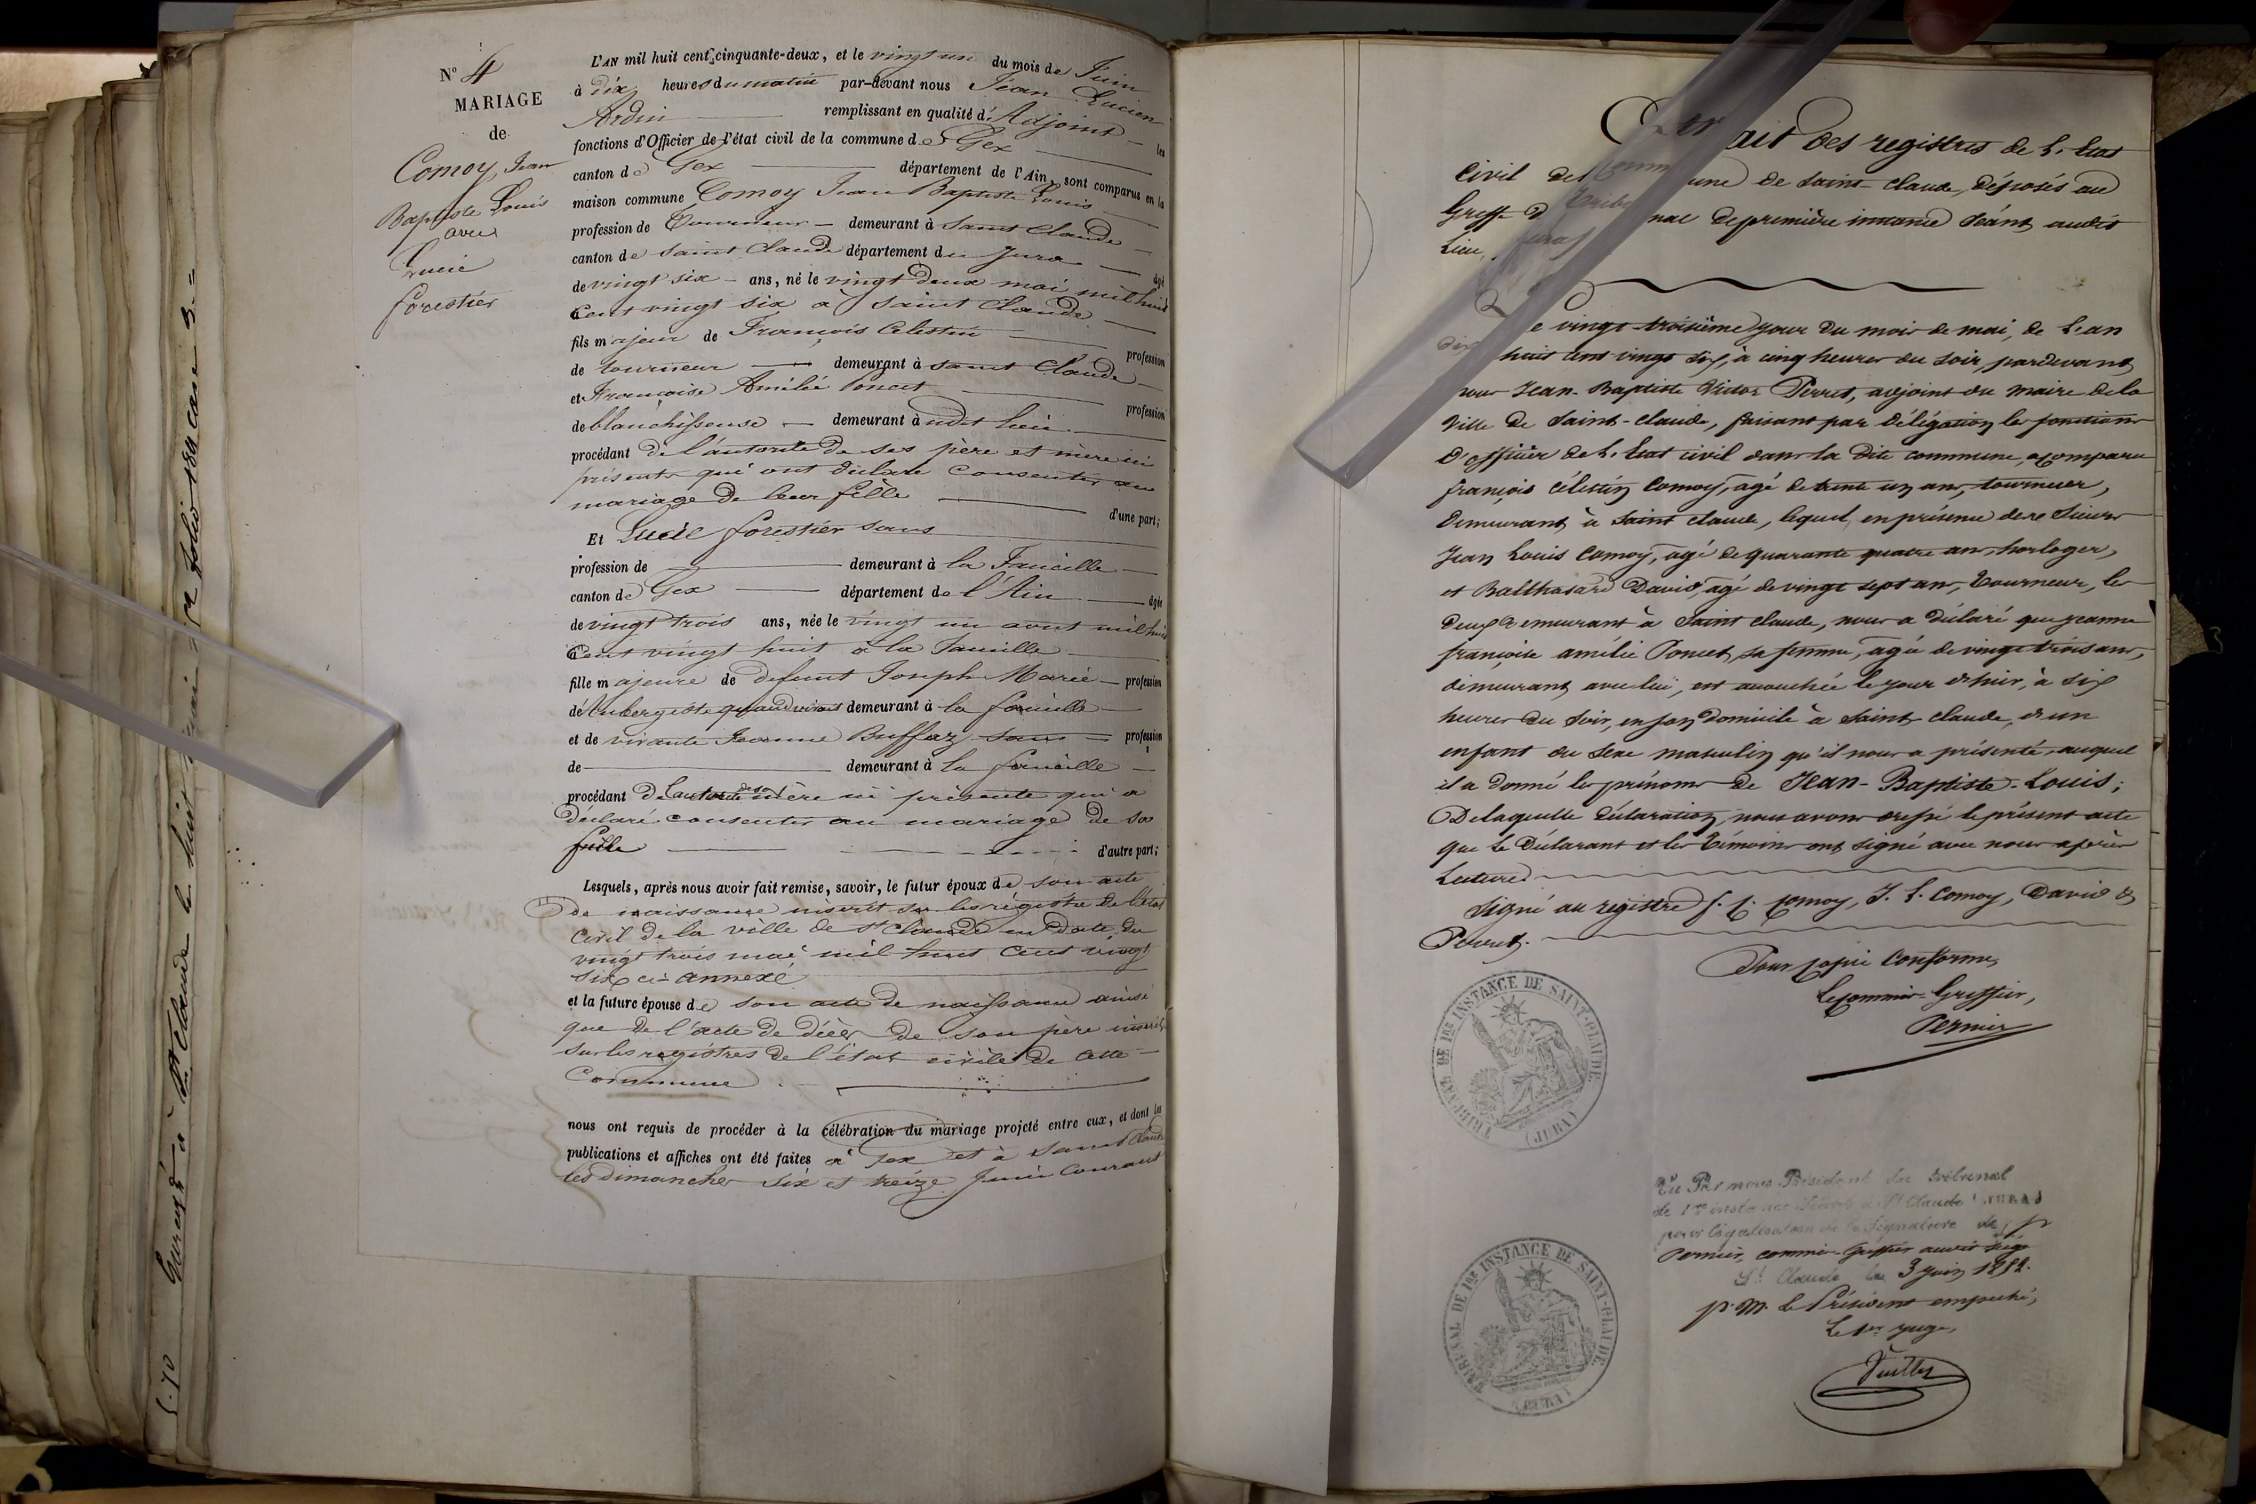 N° 4
MARIAGE
de
Comoy, Jean
Baptiste Louis
avec
Lucie
forestier
L'AN mil huit cent cinquante-deux, et le vingt un du mois de Juin
à dix heures du matin par-devant nous Jean Lucien
Ardin remplissant en qualité d'Adjoint les
fonctions d'Officier de l'état civil de la commune de Gex
canton de Gex département de l'Ain, sont comparus en la
maison commune Comoy Jean Baptiste Louis
profession de Tourneur demeurant à saint Claude
canton de saint Claude département du Jura agé
de vingt six ans, né le vingt deux mai mil huit
cent vingt six à saint Claude
fils majeur de François Celestin profession
de tourneur demeurant à saint Claude
et Françoise Amélie Poncet profession
de blanchisseuse demeurant à udit lieu
procédant de l'autorité de ses père et mère ici
présents qui ont déclaré consentir au
mariage de leur fille
d'une part;
Et Lucie forestier sans
profession de demeurant à la Faucille
canton de Gex département de l'Ain agée
de vingt trois ans, née le vingt un aout mil huit
cent vingt huit à la Faucille
fille majeure de defunt Joseph Marie profession
de Aubergiste quand vivait demeurant à la faucille
et de vivante Jeanne Buffaz sans profession
de demeurant à la faucille
procédant de l'autorité de sa mère ici présente qui a
déclaré consentir au mariage de sa
fille d'autre part;
Lesquels, après nous avoir fait remise, savoir, le futur époux de son acte
de naissance inscrit sur les régistre de l'état
civil de la ville de St Claude en date du
vingt trois mai mil huit cent vingt
six ci annexé
et la future épouse de son acte de naissance ainsi
que de l'acte de décès de son père inscrits
sur les registres de l'état civile de cette
Commune
nous ont requis de procéder à la célébration du mariage projeté entre eux, et dont les
publications et affiches ont été faites à Gex et à saint Claude
les dimanches six et treize Juin courant
Extrait des registres de l'Etat
Civil de commune de saint-claude, déposés au
Greffe du Tribunal de première instance séant audit
Lieu, Jura
Le vingt-troisième jour du mois de mai, de l'an
dix huit cent vingt six, à cinq heures du soir, pardevant
nous Jean-Baptiste Victor Perret, adjoint du maire de la
Ville de Saint-claude, faisant par délégation les fonctions
d'officier de l'Etat civil dans la dite commune, a comparu
françois célestin Comoy, agé de trente un ans, tourneur,
demeurant à saint claude, lequel, en présence de se Sieurs
Jean Louis Comoy, agé de quarante quatre ans, horloger,
et Balthasard David, agé de vingt sept ans, Tourneur, les
deux demeurant à saint claude, nous a déclaré que jeanne
françoise amélie Poncet, sa femme, agée de vingt trois ans,
demeurant avec lui, est accouchée le jour d'hier, à six
heures du soir, en son domicile à saint claude, d'un
enfant du sexe masculin qu'il nous a présenté, auquel
il a donné les prénoms de Jean-Baptiste-Louis;
De laquelle déclaration, nous avons dressé le présent acte
que le déclarant et les témoins ont signé avec nous après
Lecture.
Signé au registre f. c. comoy, J. L. Comoy, David &
Perret.
Pour copie conforme,
Le commis-Greffier,
Pernier
TRIBUNAL DE 1ère INSTANCE DE SAINT-CLAUDE (JURA)
Vu Par nous Président du tribunal
de 1re instance séant à St Claude (JURA)
pour légalisation de la signature de Mr
Pernier, commis-greffier audit siège
St Claude le 3 juin 1852.
p. M. le Président empêché,
Le 1er juge,
Vuillet
TRIBUNAL DE 1ère INSTANCE DE SAINT-CLAUDE (JURA)